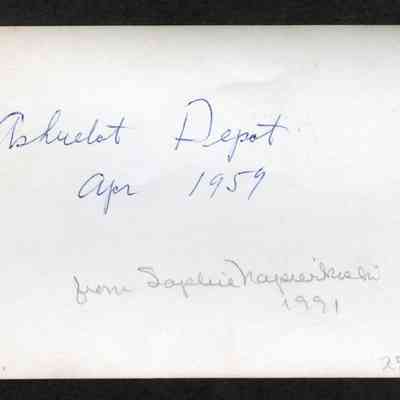 Ashuelot Depot
Apr 1959
from Sophie Napierkoski
1991